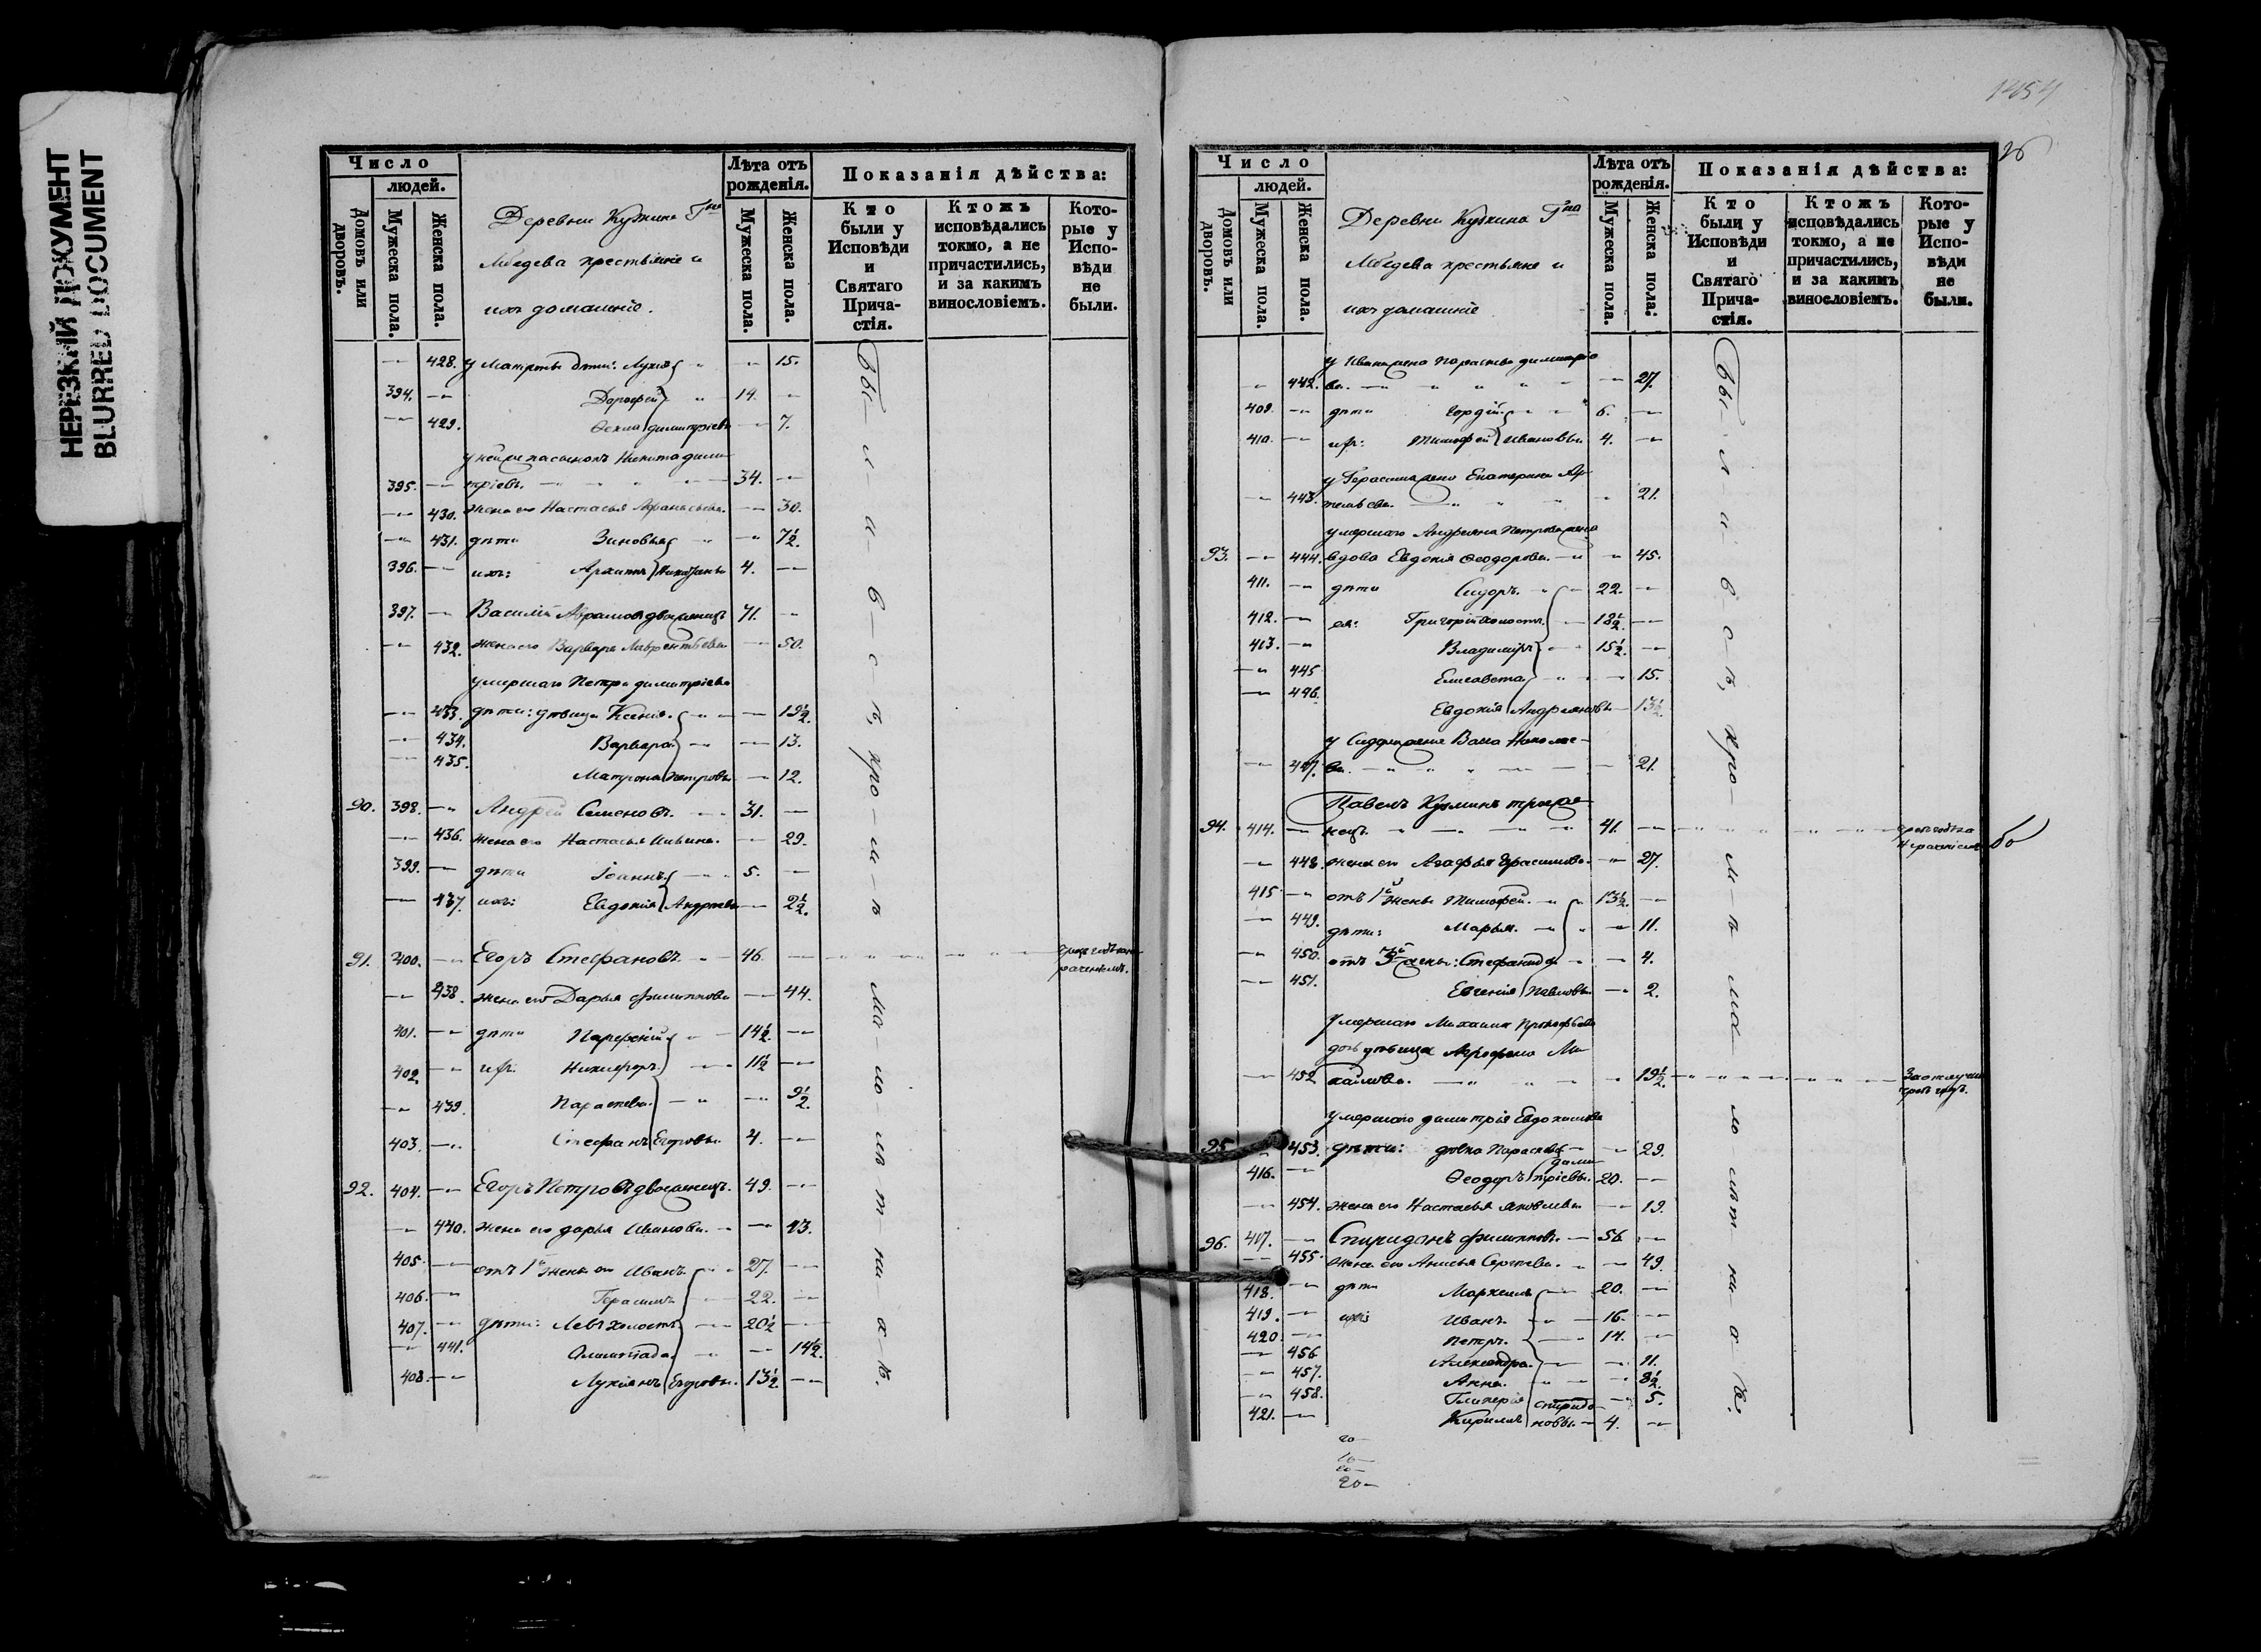 НЕРЕЗКИЙ ДОКУМЕНТ
BLURRED DOCUMENT
Число
людей.
Домовъ или дворовъ.
Мужеска пола.
Женска пола.
Деревни Кузкина Гна
Лебедева крестьяне и
ихъ домашніе.
Лѣта отъ рожденія.
Мужеска пола.
Женска пола.
Показанія дѣйства:
Кто были у Исповѣди и Святаго Причастія.
Ктожъ исповѣдались токмо, а не причастились, и за какимъ винословіемъ.
Которые у Исповѣди не были.
428. у Матроны дѣти: Лукія 15.
394. Дорофей 14.
429. Ѳекла димитріевы 7.
у нея же пасынокъ Никита дими-
395. тріевъ. 34.
430. жена его Настасья Афанасьева. 30.
431. дѣти Зиновья 7½.
396. ихъ: Архипъ Никитины 4.
397. Василій Абрамовъ двоеженецъ 71.
432. жена его Варвара Лаврентьева 50.
умершаго Петра димитріева
433. дѣти: дѣвица Ксенія. 19½.
434. Варвара 13.
435. Матрона Петровы 12.
90. 398. Андрей Семеновъ. 31.
436. жена его Настасья Ильина. 29.
399. дѣти Іоаннъ 5.
437. ихъ: Евдокія Андреевы 2½.
91. 400. Егоръ Стефановъ. 46.
438. жена его Дарья Филиппова 44.
401. дѣти Парфеній 14½.
402. ихъ: Никифоръ. 11½
439. Параскева. 9½.
403. Стефанъ Егоровы. 4.
92. 404. Егоръ Петровъ двоеженецъ. 49.
440. жена его дарья Иванова. 43.
405. отъ 1й жены его Иванъ. 27.
406. Герасимъ 22.
407. дѣти: Левъ холостъ 20½
441. Олимпіада. 14½.
408. Лукіянъ Егоровы. 13½.
Были въ всѣ, кромѣ малолѣтнихъ.
1454
26
Число
людей.
Домовъ или дворовъ.
Мужеска пола.
Женска пола.
Деревни Кузкина Гна
Лебедева крестьяне и
ихъ домашніе
Лѣта отъ рожденія.
Мужеска пола.
Женска пола.
Показанія дѣйства:
Кто были у Исповѣди и Святаго Причастія.
Ктожъ исповѣдались токмо, а не причастились, и за какимъ винословіемъ.
Которые у Исповѣди не были.
у Ивана жена Параскева димитріе
442. ва. 27.
409. дѣти Гордій 6.
410. ихъ: Тимофей Ивановы 4.
у Герасима жена Екатерина Ар-
443. темьева. 21.
умершаго Андреяна Петрова жена
93. 444. вдова Евдокія Ѳеодорова. 45.
411. дѣти Сидоръ. 22.
412. ея: Григорій холостъ. 18½.
413. Владиміръ 15½.
445 Елисавета 15.
446. Евдокія Андреяновы 13½.
у Сидора жена Васса Николае-
447. ва. 21.
Павелъ Кузминъ троеже-
94. 414. нецъ. 41.
448. жена его Агафья Герасимова. 27.
415 отъ 1й жены Тимофей. 13½.
449. дѣти: Марья. 11.
450. отъ 3й жены: Стефанида 4.
451. Евгенія Павловы. 2.
умершаго Михаила Прокофьева
дочь дѣвица Афросинья Ми-
452 хайлова. 19½.
умершаго димитрія Евдокимова
95. 453. дѣти: дѣвка Параскева 29.
416. Ѳеодоръ димитріевы. 20.
454. жена его Настасья Яковлева 19.
96. 417. Спиридонъ Филипповъ. 56.
455. жена его Анисья Сергеева. 49.
418. дѣти Маркелъ 20.
419. ихъ Иванъ. 16.
420. Петръ. 14.
456 Александра. 11.
457. Анна. 8½.
458. Гликерія 5.
421. Кирилъ спиридоновы. 4.
Были въ всѣ, кромѣ малолѣтнихъ.